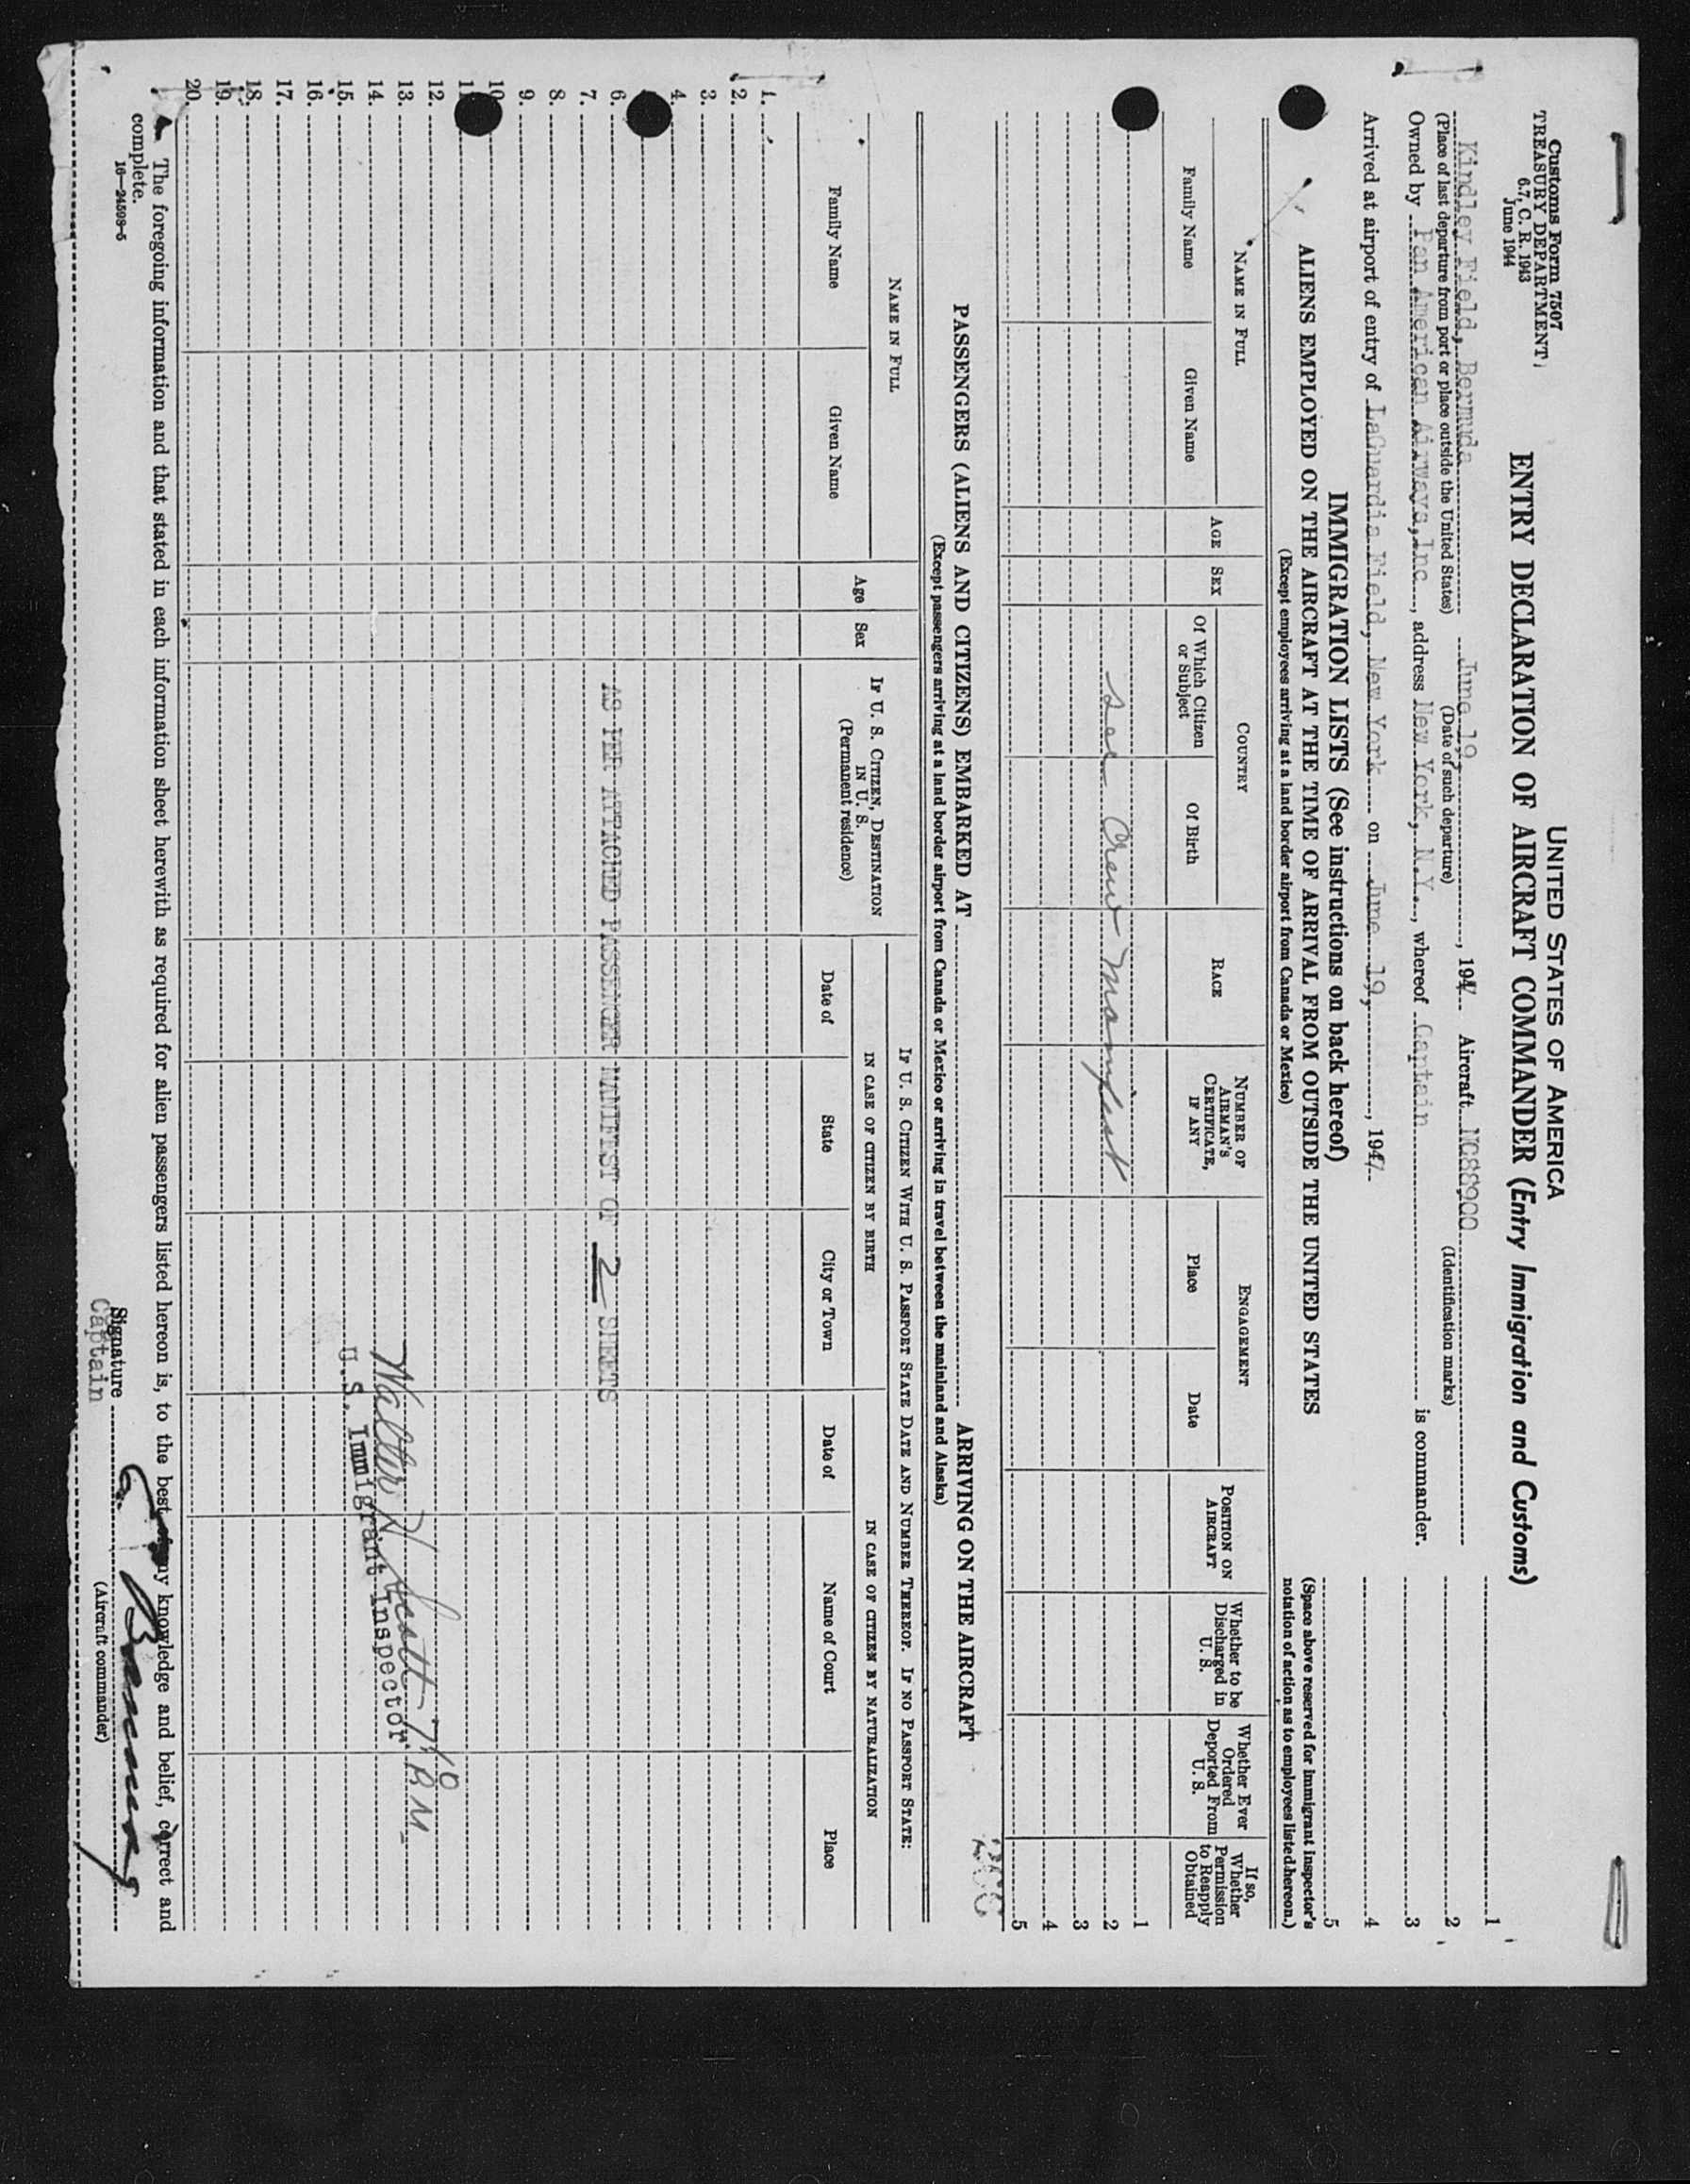 Customs Form 7507
TREASURY DEPARTMENT
6.7, C. R. 1943
June 1944
UNITED STATES OF AMERICA
ENTRY DECLARATION OF AIRCRAFT COMMANDER (Entry Immigration and Customs)
Kindley Field, Bermuda June 19, 1947 Aircraft NC88900
(Place of last departure from port or place outside the United States) (Date of such departure) (Identification marks)
Owned by Pan American Airways, Inc., address New York, N.Y., whereof Captain is commander.
Arrived at airport of entry of LaGuardia Field, New York on June 19, 1947
1
2
3
4
5
(Space above reserved for immigrant inspector's notation of action as to employees listed hereon.)
IMMIGRATION LISTS (See instructions on back hereof)
ALIENS EMPLOYED ON THE AIRCRAFT AT THE TIME OF ARRIVAL FROM OUTSIDE THE UNITED STATES
(Except employees arriving at a land border airport from Canada or Mexico)
NAME IN FULL
Family Name
Given Name
AGE
SEX
COUNTRY
Of Which Citizen or Subject
Of Birth
RACE
NUMBER OF AIRMAN'S CERTIFICATE, IF ANY
ENGAGEMENT
Place
Date
POSITION ON AIRCRAFT
Whether to be Discharged in U. S.
Whether Ever Ordered Deported From U. S.
If so, Whether Permission to Reapply Obtained
See Crew Manifest
1
2
3
4
5
PASSENGERS (ALIENS AND CITIZENS) EMBARKED AT ARRIVING ON THE AIRCRAFT
(Except passengers arriving at a land border airport from Canada or Mexico or arriving in travel between the mainland and Alaska)
NAME IN FULL
Family Name
Given Name
Age
Sex
IF U. S. CITIZEN, DESTINATION IN U. S.
(Permanent residence)
IF U. S. CITIZEN WITH U. S. PASSPORT STATE DATE AND NUMBER THEREOF. IF NO PASSPORT STATE:
IN CASE OF CITIZEN BY BIRTH
IN CASE OF CITIZEN BY NATURALIZATION
Date of
State
City or Town
Date of
Name of Court
Place
1.
2.
3.
4.
6.
AS PER ATTACHED PASSENGER MANIFEST OF 2 SHEETS
7.
8.
9.
10
11
12.
13.
Walter H
14.
U.S. Immigrant Inspector.
15.
16.
17.
18.
19.
20.
The foregoing information and that stated in each information sheet herewith as required for alien passengers listed hereon is, to the best of my knowledge and belief, correct and complete.
16—24598-5
Signature
Captain
(Aircraft commander)